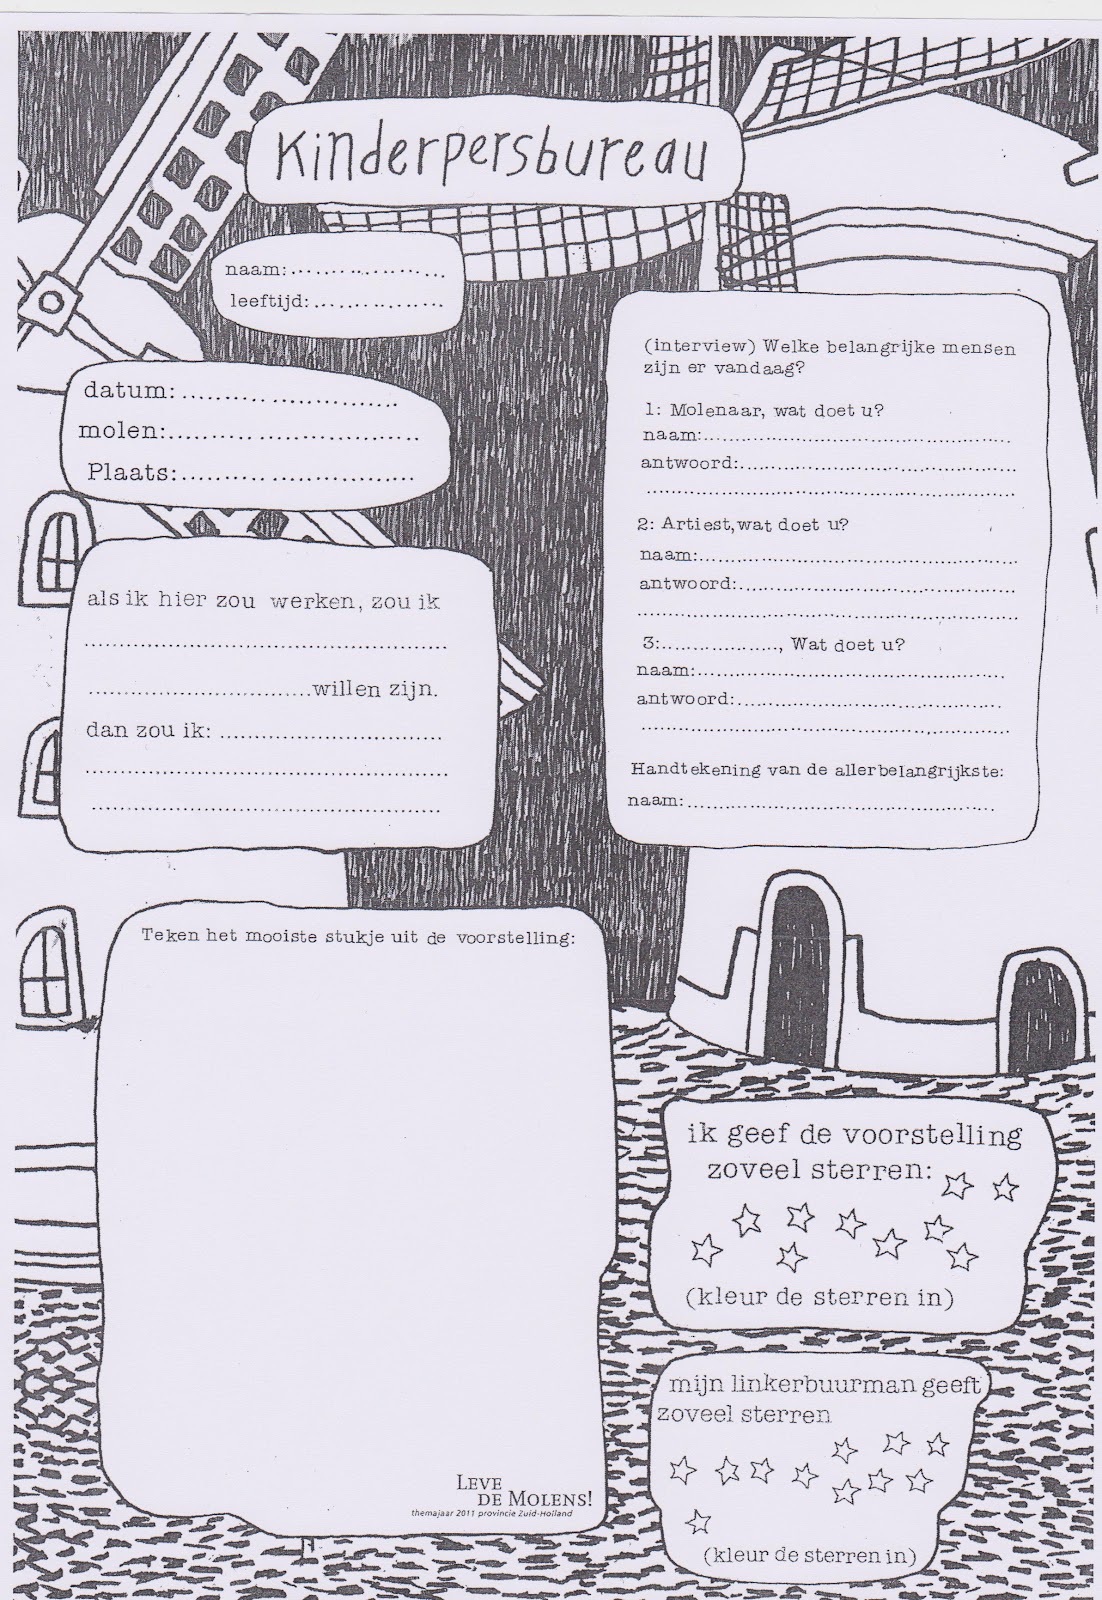 Kinderpersbureau
naam:..................
leeftijd:................
datum:..........................
molen:..............................
Plaats:............................
als ik hier zou werken, zou ik
......................................................
.................................willen zijn.
dan zou ik: .................................
......................................................
......................................................
(interview) Welke belangrijke mensen
zijn er vandaag?
1: Molenaar, wat doet u?
naam:......................................................
antwoord:................................................
................................................................
2: Artiest,wat doet u?
naam:......................................................
antwoord:................................................
................................................................
3:..................., Wat doet u?
naam:......................................................
antwoord:................................................
................................................................
Handtekening van de allerbelangrijkste:
naam:......................................................
Teken het mooiste stukje uit de voorstelling:
LEVE
DE MOLENS!
themajaar 2011 provincie Zuid-Holland
ik geef de voorstelling
zoveel sterren:
(kleur de sterren in)
mijn linkerbuurman geeft
zoveel sterren
(kleur de sterren in)